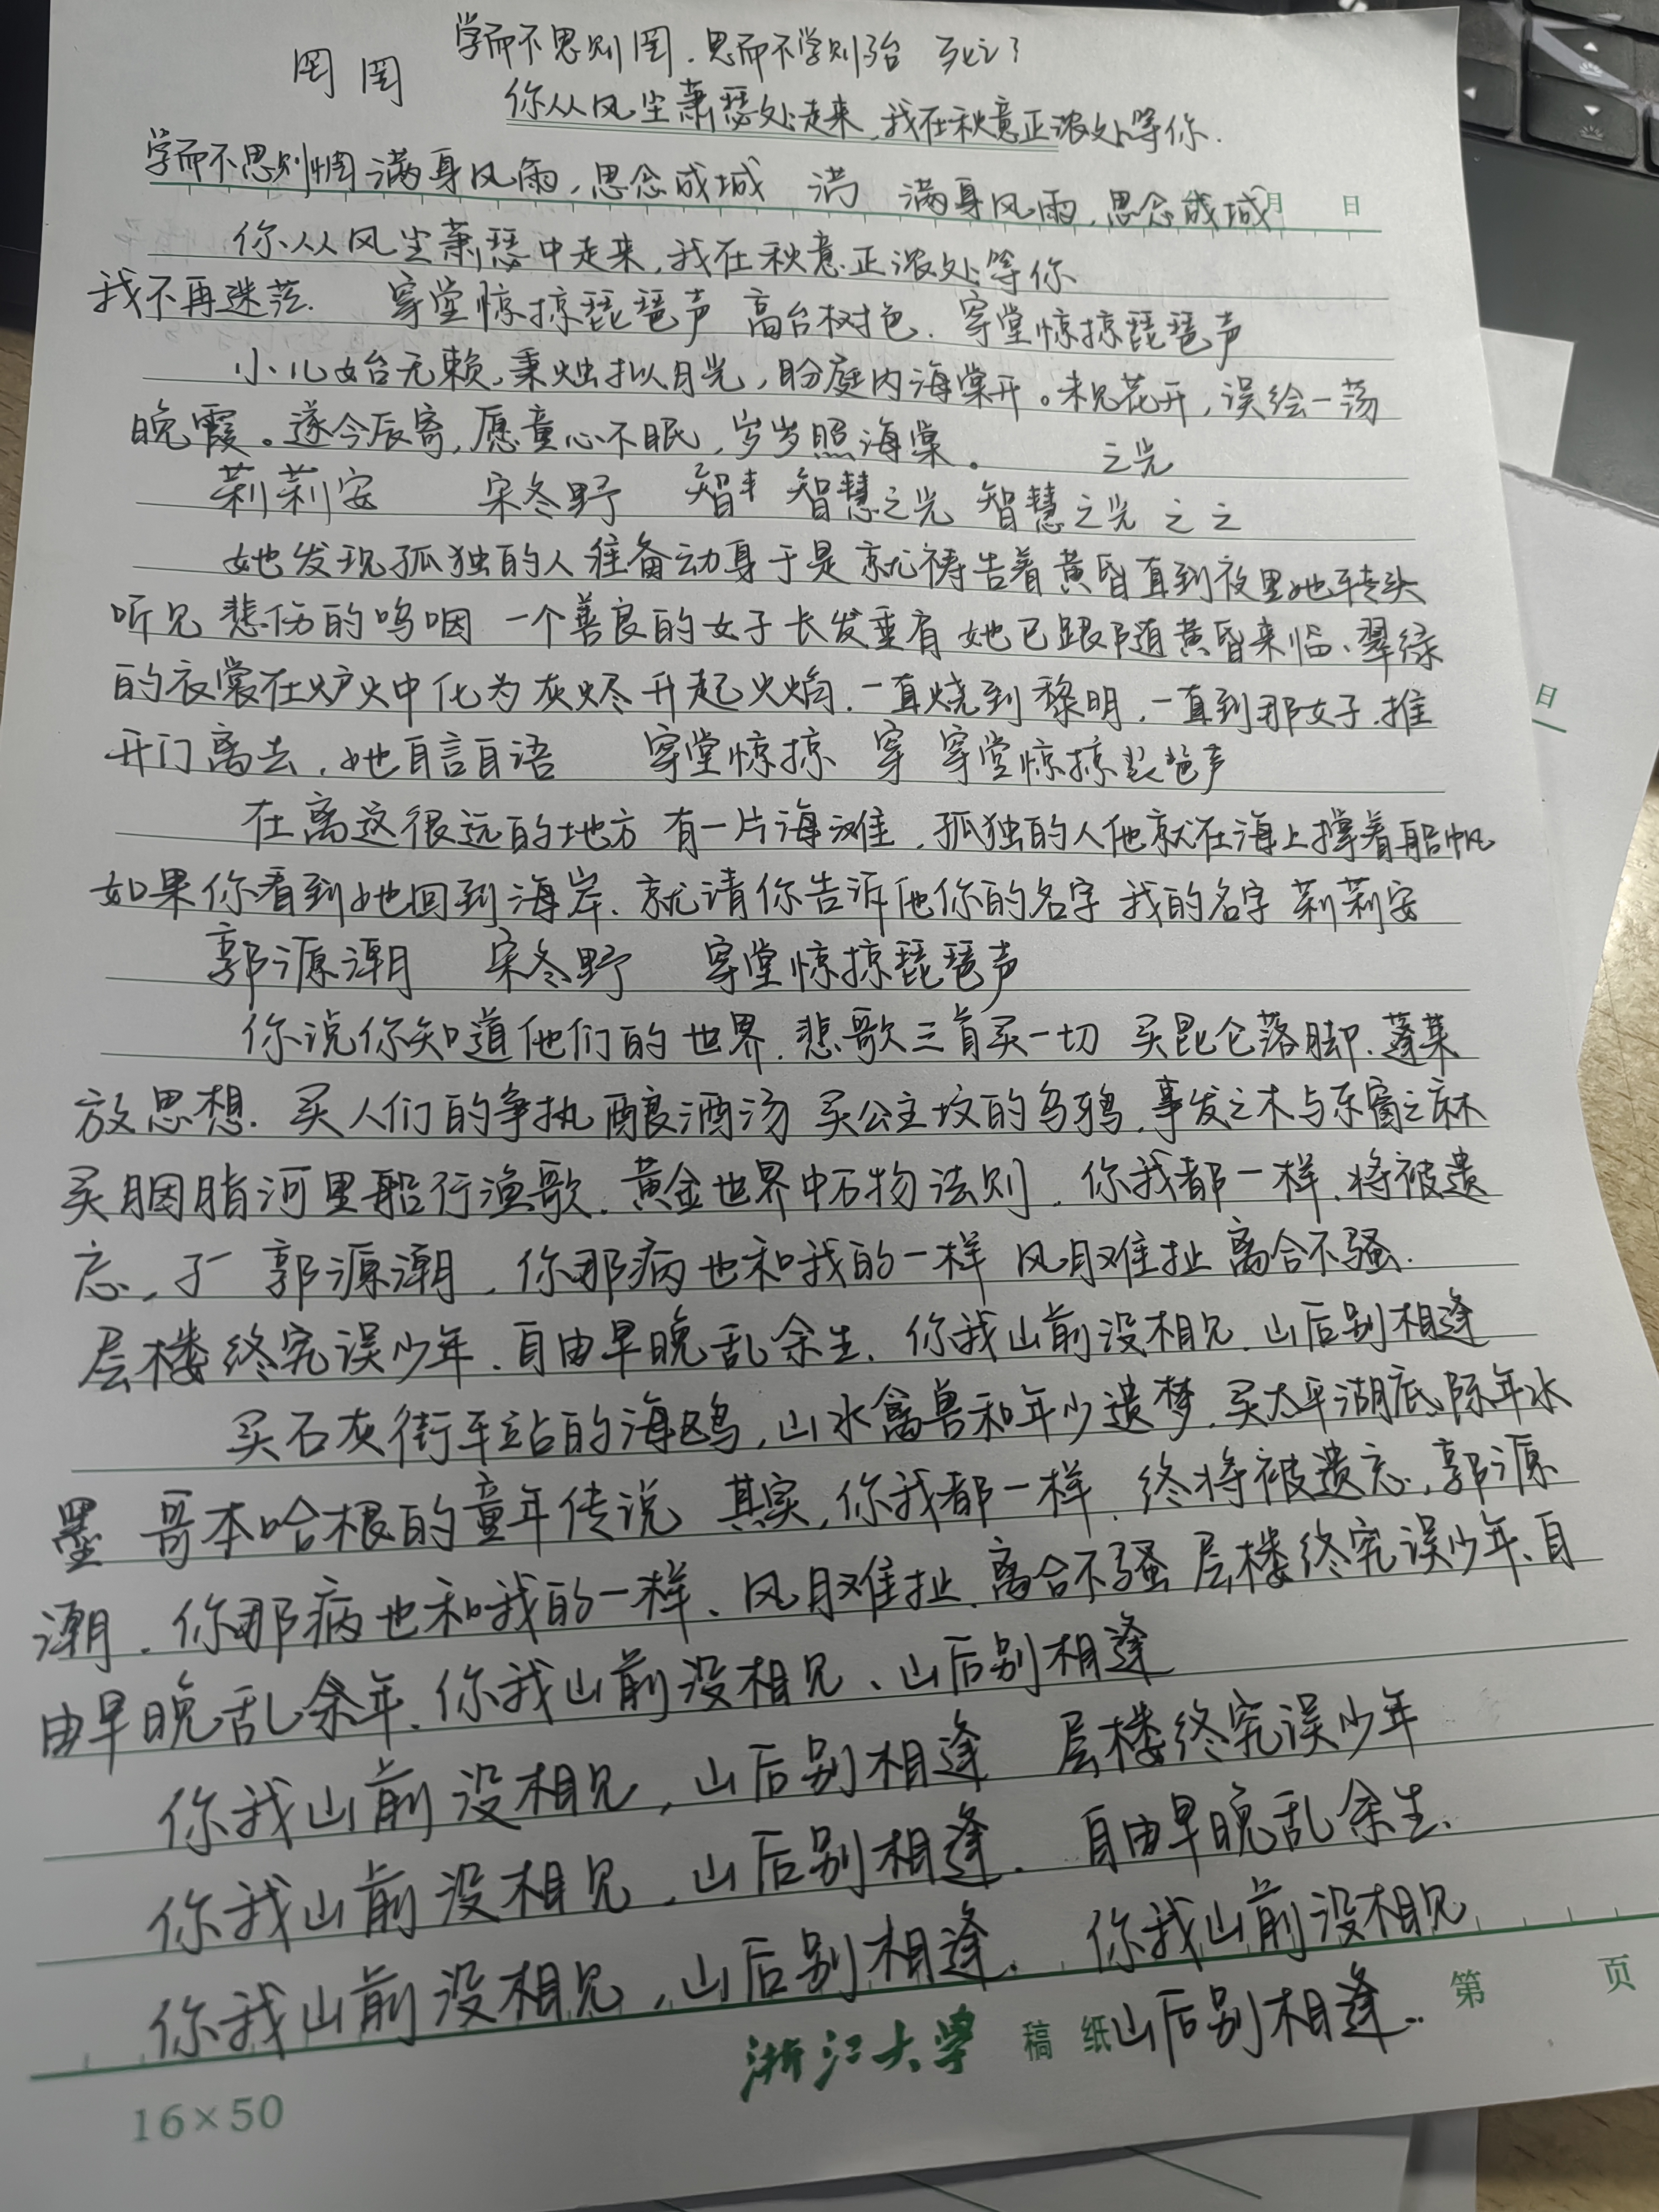 学而不思则罔.思而不学则殆
罔 罔
你从风尘萧瑟处走来,我在秋意正浓处等你.
学而不思则惘 满身风雨,思念成城 满 满身风雨,思念成城 月 日
你从风尘萧瑟中走来,我在秋意正浓处等你
我不再迷茫. 穿堂惊掠琵琶声 高台树色. 穿堂惊掠琵琶声
小儿女台无赖,秉烛拟月光,盼庭内海棠开。未见花开,误绘一荡
晚霞。遂今辰寄,愿童心不眠,岁岁照海棠。 之光
莉莉安 宋冬野 智 智慧之光 智慧之光 之之
她发现孤独的人准备动身于是就祷告着黄昏直到夜里她转头
听见悲伤的呜咽 一个善良的女子长发垂肩 她已跟随黄昏来临、翠绿
的衣裳在炉火中化为灰烬升起火焰.一直烧到黎明,一直到那女子.推
开门离去,她自言自语 穿堂惊掠 穿 穿堂惊掠琵琶声
在离这很远的地方 有一片海滩,孤独的人他就在海上撑着船帆
如果你看到她回到海岸、就请你告诉他你的名字 我的名字 莉莉安
郭源潮 宋冬野 穿堂惊掠琵琶声
你说你知道他们的世界.悲歌三首买一切 买昆仑落脚.蓬莱
放思想.买人们的争执酿酒汤 买公主坟的乌鸦,事发之木与东窗之麻
买胭脂河里船行渔歌.黄金世界中石物法则,你我都一样.将被遗
忘, 郭源潮,你那病也和我的一样 风月难扯 离合不骚.
层楼终究误少年.自由早晚乱余生.你我山前没相见.山后别相逢
买石灰街车站的海鸥,山水禽兽和年少遗梦.买太平湖底陈年水
墨 哥本哈根的童年传说 其实,你我都一样.终将被遗忘,郭源
潮.你那病也和我的一样、风月难扯.离合不骚 层楼终究误少年、自
由早晚乱余年.你我山前没相见、山后别相逢
你我山前没相见,山后别相逢 层楼终究误少年
你我山前没相见,山后别相逢. 自由早晚乱余生.
你我山前没相见,山后别相逢. 你我山前没相见
山后别相逢..
浙江大学 稿 纸 第 页
16×50
日